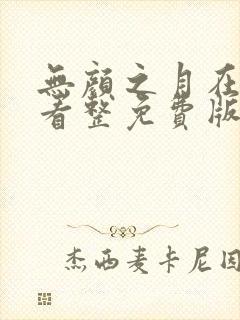 無顏之月在
看整免費版
杰西麦卡尼因